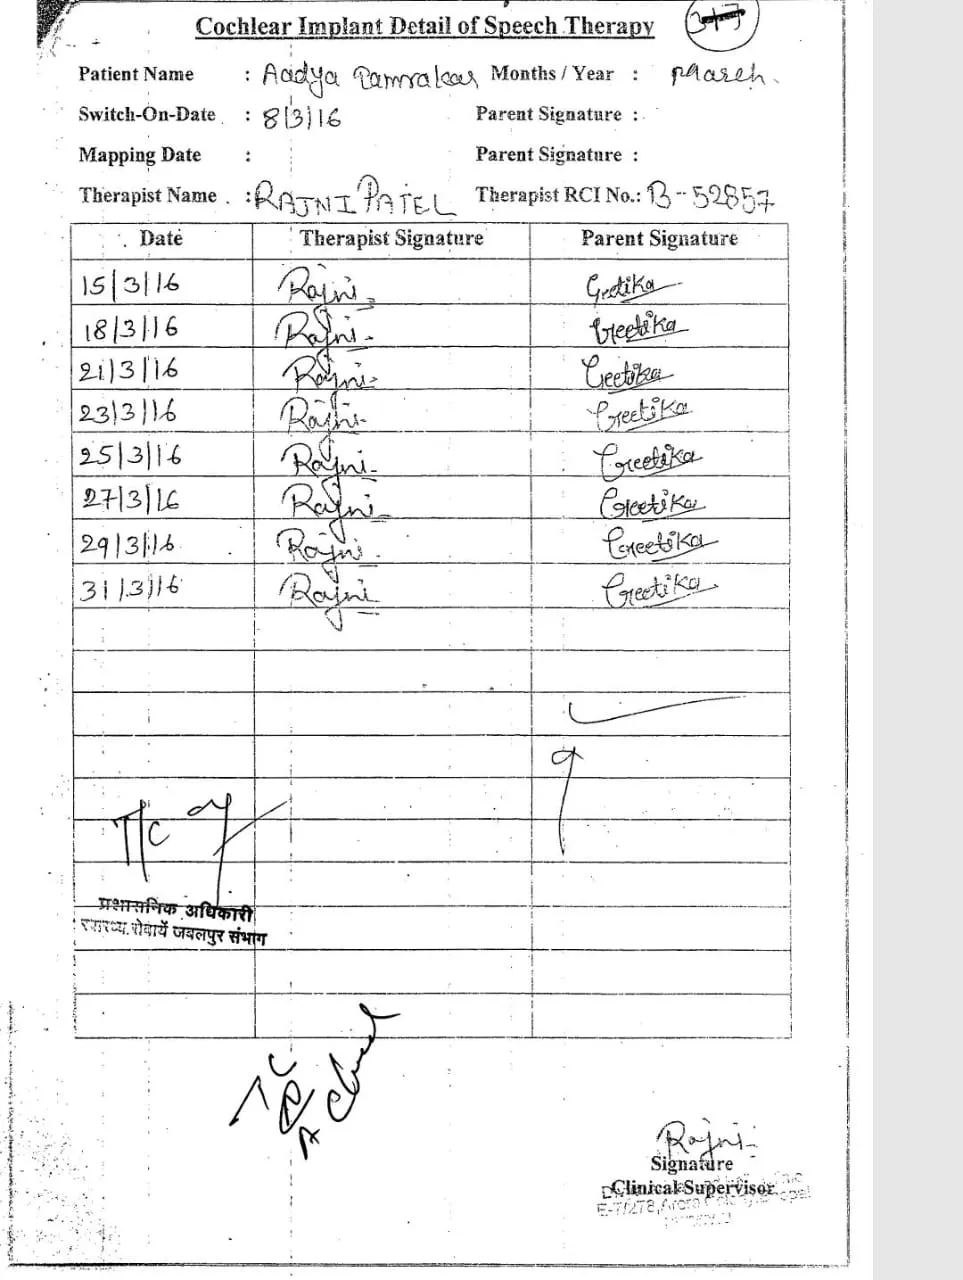 Cochlear Implant Detail of Speech Therapy
Patient Name : Aadya Pamrakar Months / Year : March.
Switch-On-Date : 8/3/16 Parent Signature :
Mapping Date : Parent Signature :
Therapist Name : RAJNI PATEL Therapist RCI No.: B-52857
Date Therapist Signature Parent Signature
15/3/16 Rajni Geetika
18/3/16 Rajni Geetika
21/3/16 Rajni Geetika
23/3/16 Rajni Geetika
25/3/16 Rajni Geetika
27/3/16 Rajni Geetika
29/3/16 Rajni Geetika
31/3/16 Rajni Geetika
T/C
प्रशासनिक अधिकारी
स्वास्थ्य सेवायें जबलपुर संभाग
TC
Rajni
Signature
Clinical Supervisor
E-7/278, Arera